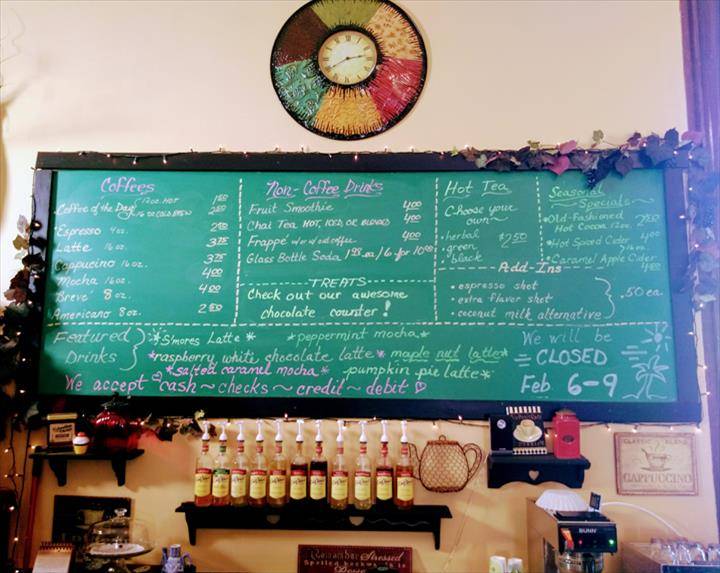 Coffees
Coffee of the Day 12oz. HOT
16 oz COLD BREW 2
Espresso 4oz. 2
Latte 16 oz. 3.75
Cappucino 16 oz. 3.75
Mocha 16 oz. 4.00
Breve' 8 oz. 4.00
Americano 8 oz.
Non-Coffee Drinks
Fruit Smoothie 4.00
Chai Tea HOT, ICED, OR BLENDED 4.00
Frappé w/ or w/o coffee 4.00
Glass Bottle Soda 1.95 ea / 6 for 10.00
TREATS
Check out our awesome
chocolate counter!
Hot Tea
Choose your
own~
• herbal
• green
• black
$2.50
Seasonal
~Specials~
Old-Fashioned
Hot Cocoa 12oz.
Hot Spiced Cider
16 oz.
Caramel Apple Cider
4.00
Add-Ins
• espresso shot
• extra flavor shot
• coconut milk alternative
.50 ea.
Featured
Drinks
S'mores Latte
*peppermint mocha*
*raspberry white chocolate latte*
maple nut latte*
*salted caramel mocha*
pumpkin pie latte*
We accept cash~checks~credit~debit
We will be
CLOSED
Feb 6-9
CLASSIC BLEND
CAPPUCCINO
BUNN
Stressed
Spelled backwards is